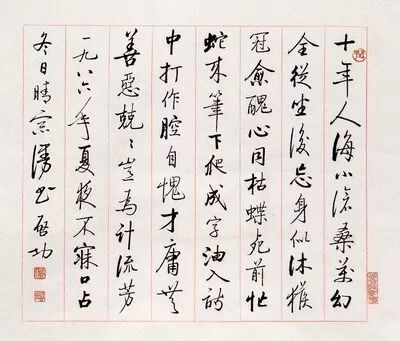 十年人海小滄桑萬幻
全從坐後忘身似沐猴
冠愈醜心同枯蝶死前忙
蛇來筆下爬成字油入詩
中打作腔自愧才庸無
善惡兢〻豈為計流芳
一九八六年夏夜不寐口占
冬日晴窗漫书啓功